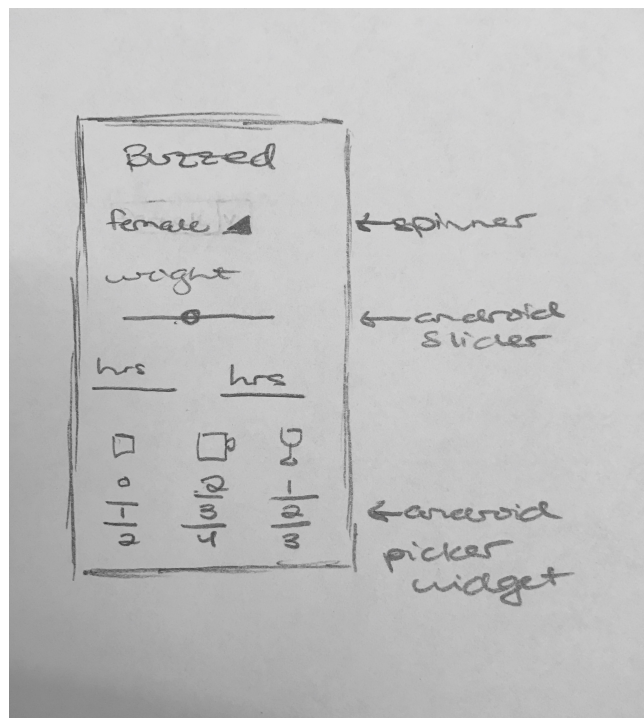 Buzzed
female
← spinner
weight
← android
slider
hrs hrs
0 2 1
1 3 2
2 4 3
← android
picker
widget